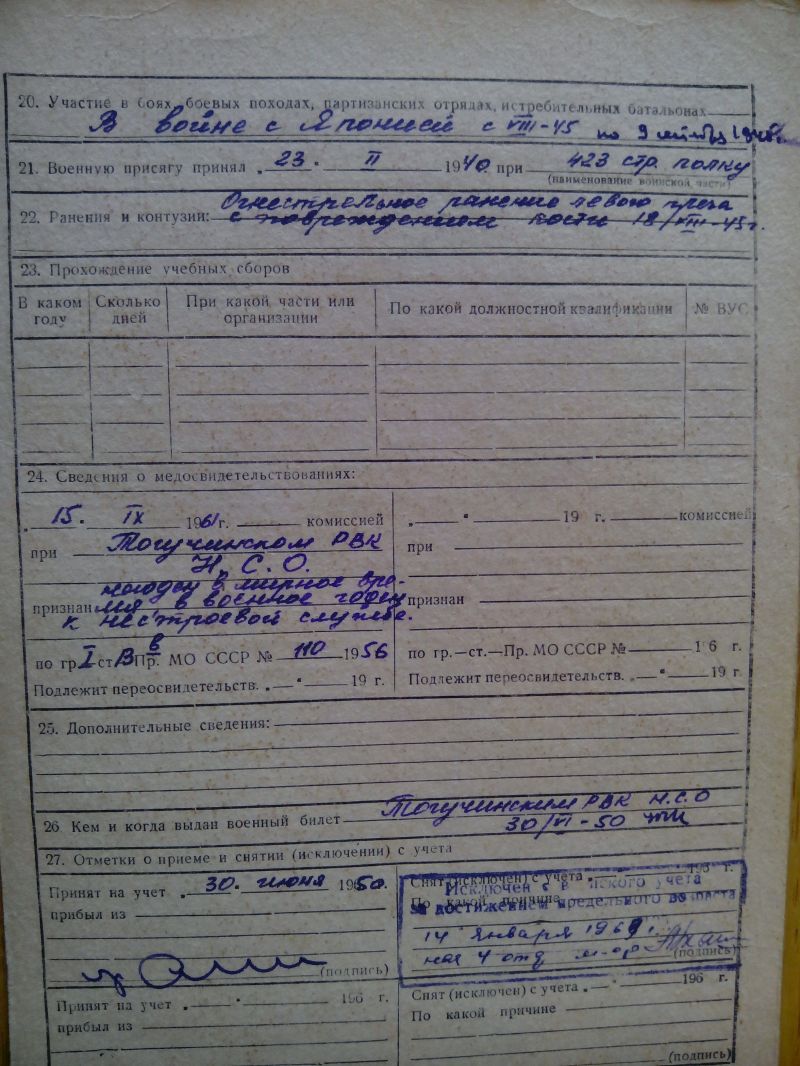 20. Участие в боях, боевых походах, партизанских отрядах, истребительных батальонах
В войне с Японией с VIII-45 по 9
21. Военную присягу принял „ 23. II 1940 при 423 стр. полку
(наименование воинской части)
Огнестрельное ранение левого
22. Ранения и контузии: с повреждением кости 18/VIII-45г.
23. Прохождение учебных сборов
В каком году
Сколько дней
При какой части или организации
По какой должностной квалификации
№ ВУС
24. Сведения о медосвидетельствованиях:
„ 15. IX 1961г. комиссией
при Тогучинском РВК
Н. С. О.
негоден в мирное вре-
признан мя в военное годен
к нестроевой службе.
по гр. I ст. В Пр. МО СССР № 110 1956
Подлежит переосвидетельств. „ — " 19 г.
„ — " 19 г. комиссией
при
признан
по гр.—ст.—Пр. МО СССР № 196 г.
Подлежит переосвидетельств. „ — " 19 г.
25. Дополнительные сведения:
26 Кем и когда выдан военный билет Тогучинским РВК Н.С.О
30/VI-50
27. Отметки о приеме и снятии (исключении) с учета
Принят на учет „ 30. июня 1950.
прибыл из
(подпись)
Снят (исключен) с учета „ 196 г.
По какой причине
Исключен с воинского учета
за достижением предельного возраста
14 января 1969г.
4 отд
(подпись)
Принят на учет „ — " 196 г.
прибыл из
Снят (исключен) с учета „ — " 196 г.
По какой причине
(подпись)